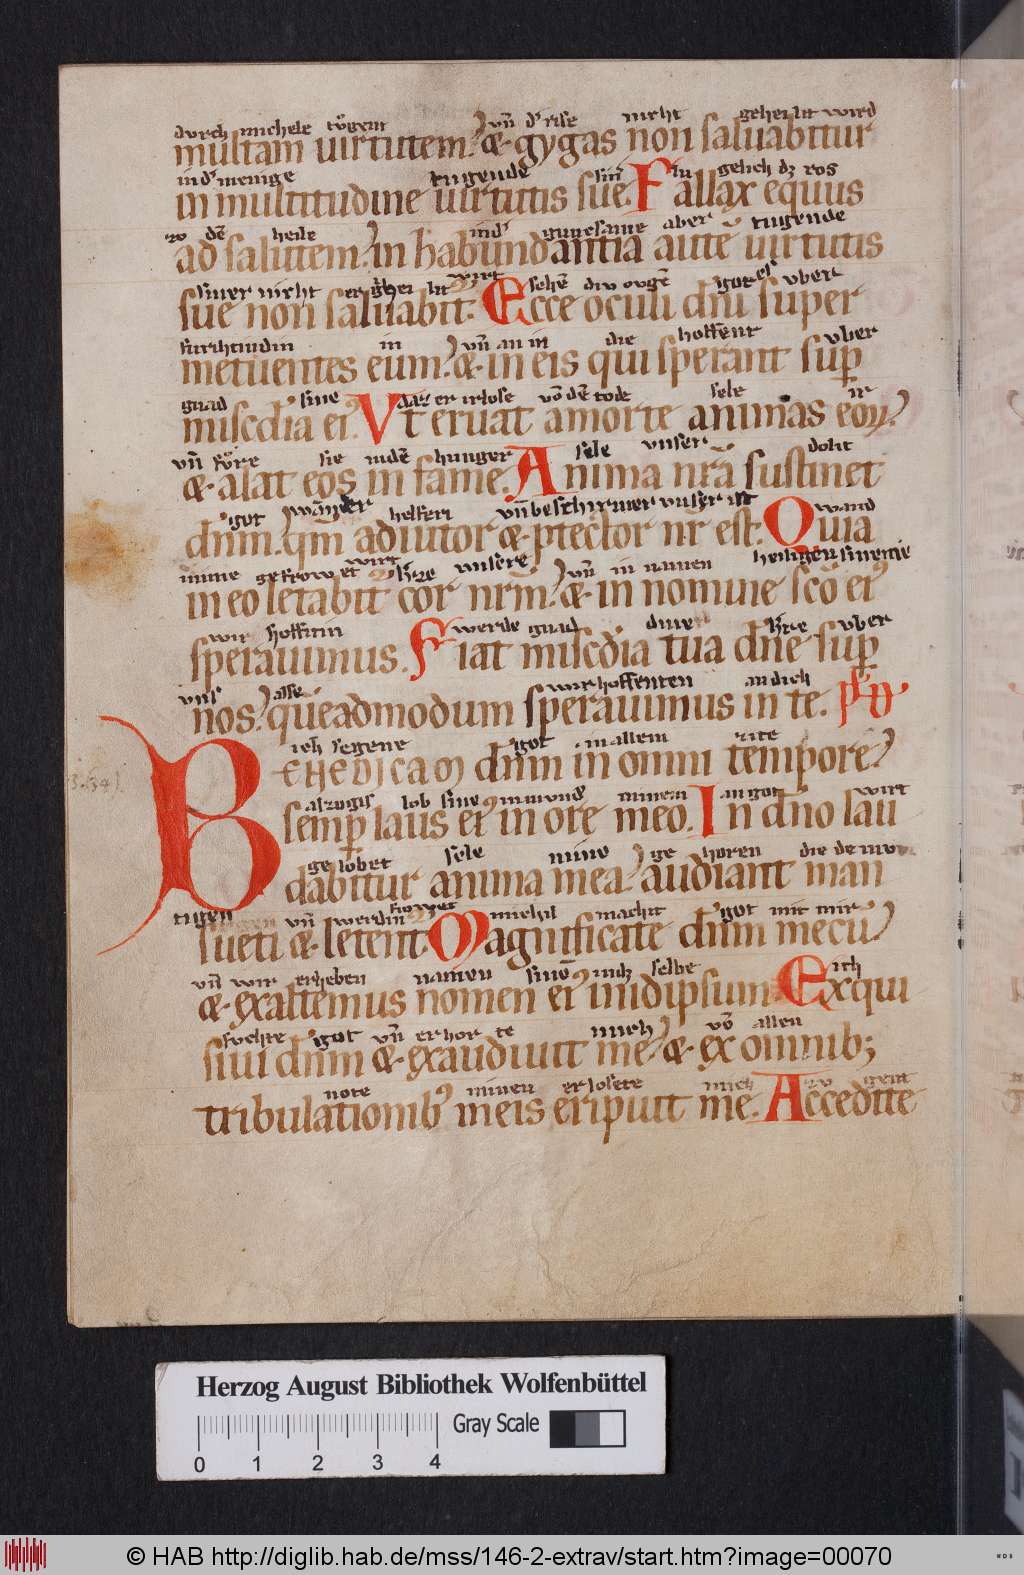 durch michele tůgent vñ d' rise nicht geheilit wird
multam uirtutem. & gygas non saluabitur
in d' menige tugende sin in gelich dz ros
in multitudine uirtutis sue. Fallax equus
zo dē heile in d' aber tugende
ad salutem. in habundantia autē uirtutis
siner nicht wirt sehē div ovgē gotes vber
sue non saluabit᷑. Ecce oculi dn̄i super
in vñ an in die hoffent vber
metuentes eum. & in eis qui sperant sup̲
gnad sine daz er irlose vō dē tode sele ir
misc̄dia ei᷒. Vt eruat a morte animas eoꝝ.
vñ fore sie in dē hunger sele vnser dolit
& alat eos in fame. Anima nr̄a sustinet
got helferi vñ beschirmer vnser ist wand
dn̄m. qm̄ adiutor & p̲tector nr̄ est. Quia
wirt h're vnsere vñ in namen heiligen
in eo letabit᷑ cor nrm̄. & in nomine sc̄o ei᷒
wir werde gnad h're vber
sperauimus. Fiat misc̄dia tua dn̄e sup̲
vns alse wir hoffenten an dich
nos. quēadmodum sperauimus in te. ps̄
ich segene got in allem zite
BENEDICAM dn̄m in omni tempore.
lob in mund minem an got wirt
semp̲ laus ei᷒ in ore meo. In dn̄o lau
gelobet sele mine ge horen die demv
dabitur anima mea. audiant man
tigen vñ werdin michil machit got mit mir
sueti & letent᷑. Magnificate dn̄m mecū
vñ wir erheben namen selbe ich
& exaltemus nomen ei᷒ in idipsum. Exqui
svchte got vñ er hor te mich vō allen
siui dn̄m & exaudiuit me. & ex omnib;
note minen erlosete mich zv gent
tribulationib᷒ meis eripuit me. Accedite
Herzog August Bibliothek Wolfenbüttel
Gray Scale
0 1 2 3 4
© HAB http://diglib.hab.de/mss/146-2-extrav/start.htm?image=00070